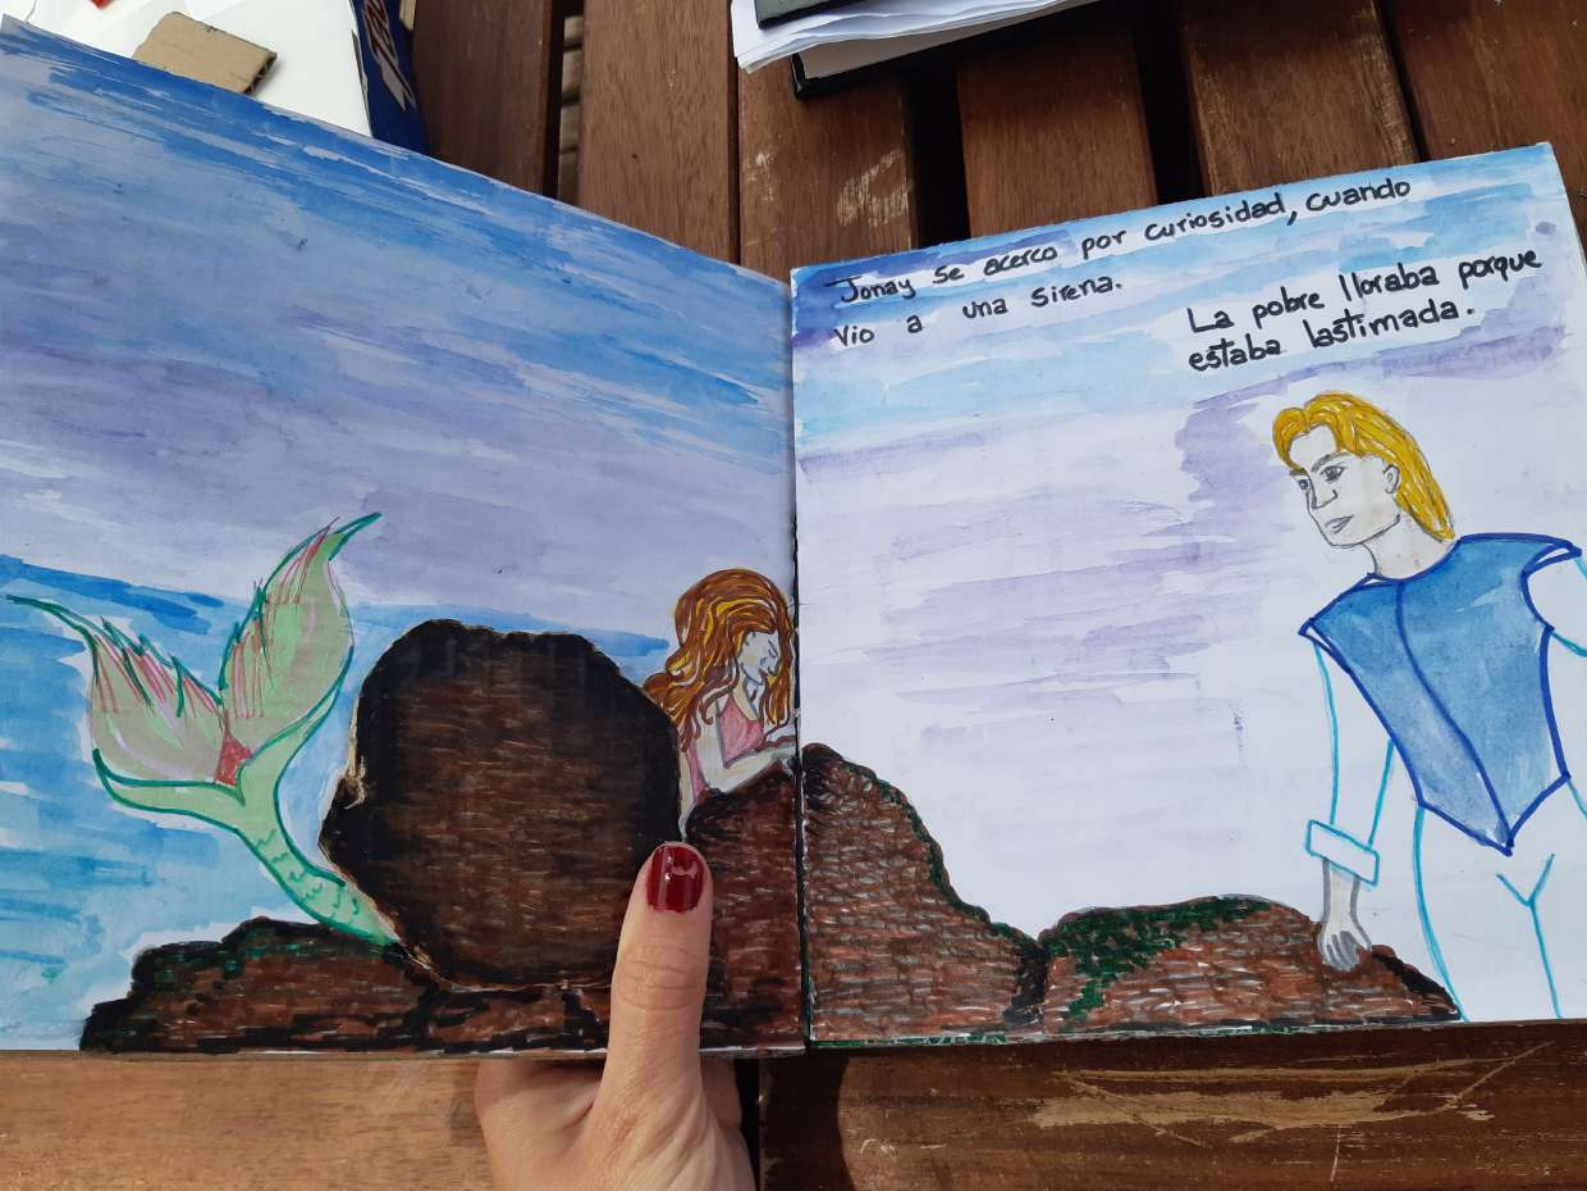 Jonay se acerco por curiosidad, cuando
vio a una sirena.
La pobre lloraba porque
estaba lastimada.